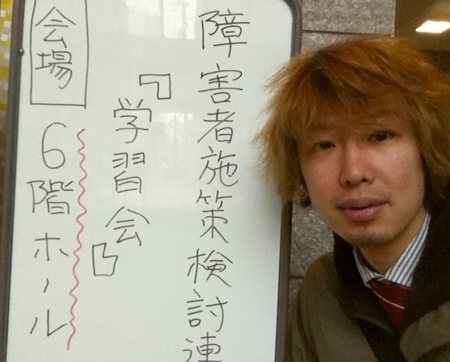 障害者施策検討連
『学習会』
会場
6階ホール